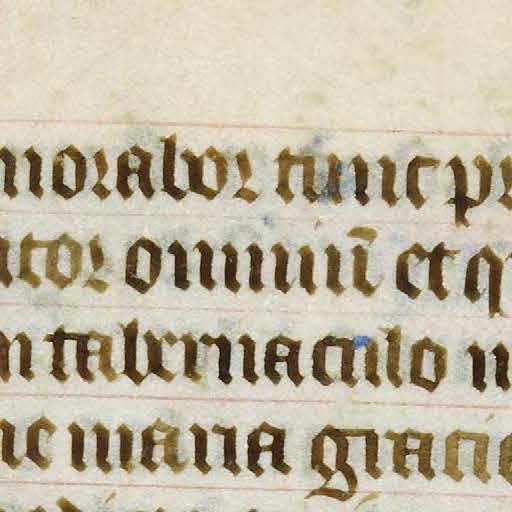 morabor tunc pr
ator omniū et q
in tabernaculo m
ue maria gracia